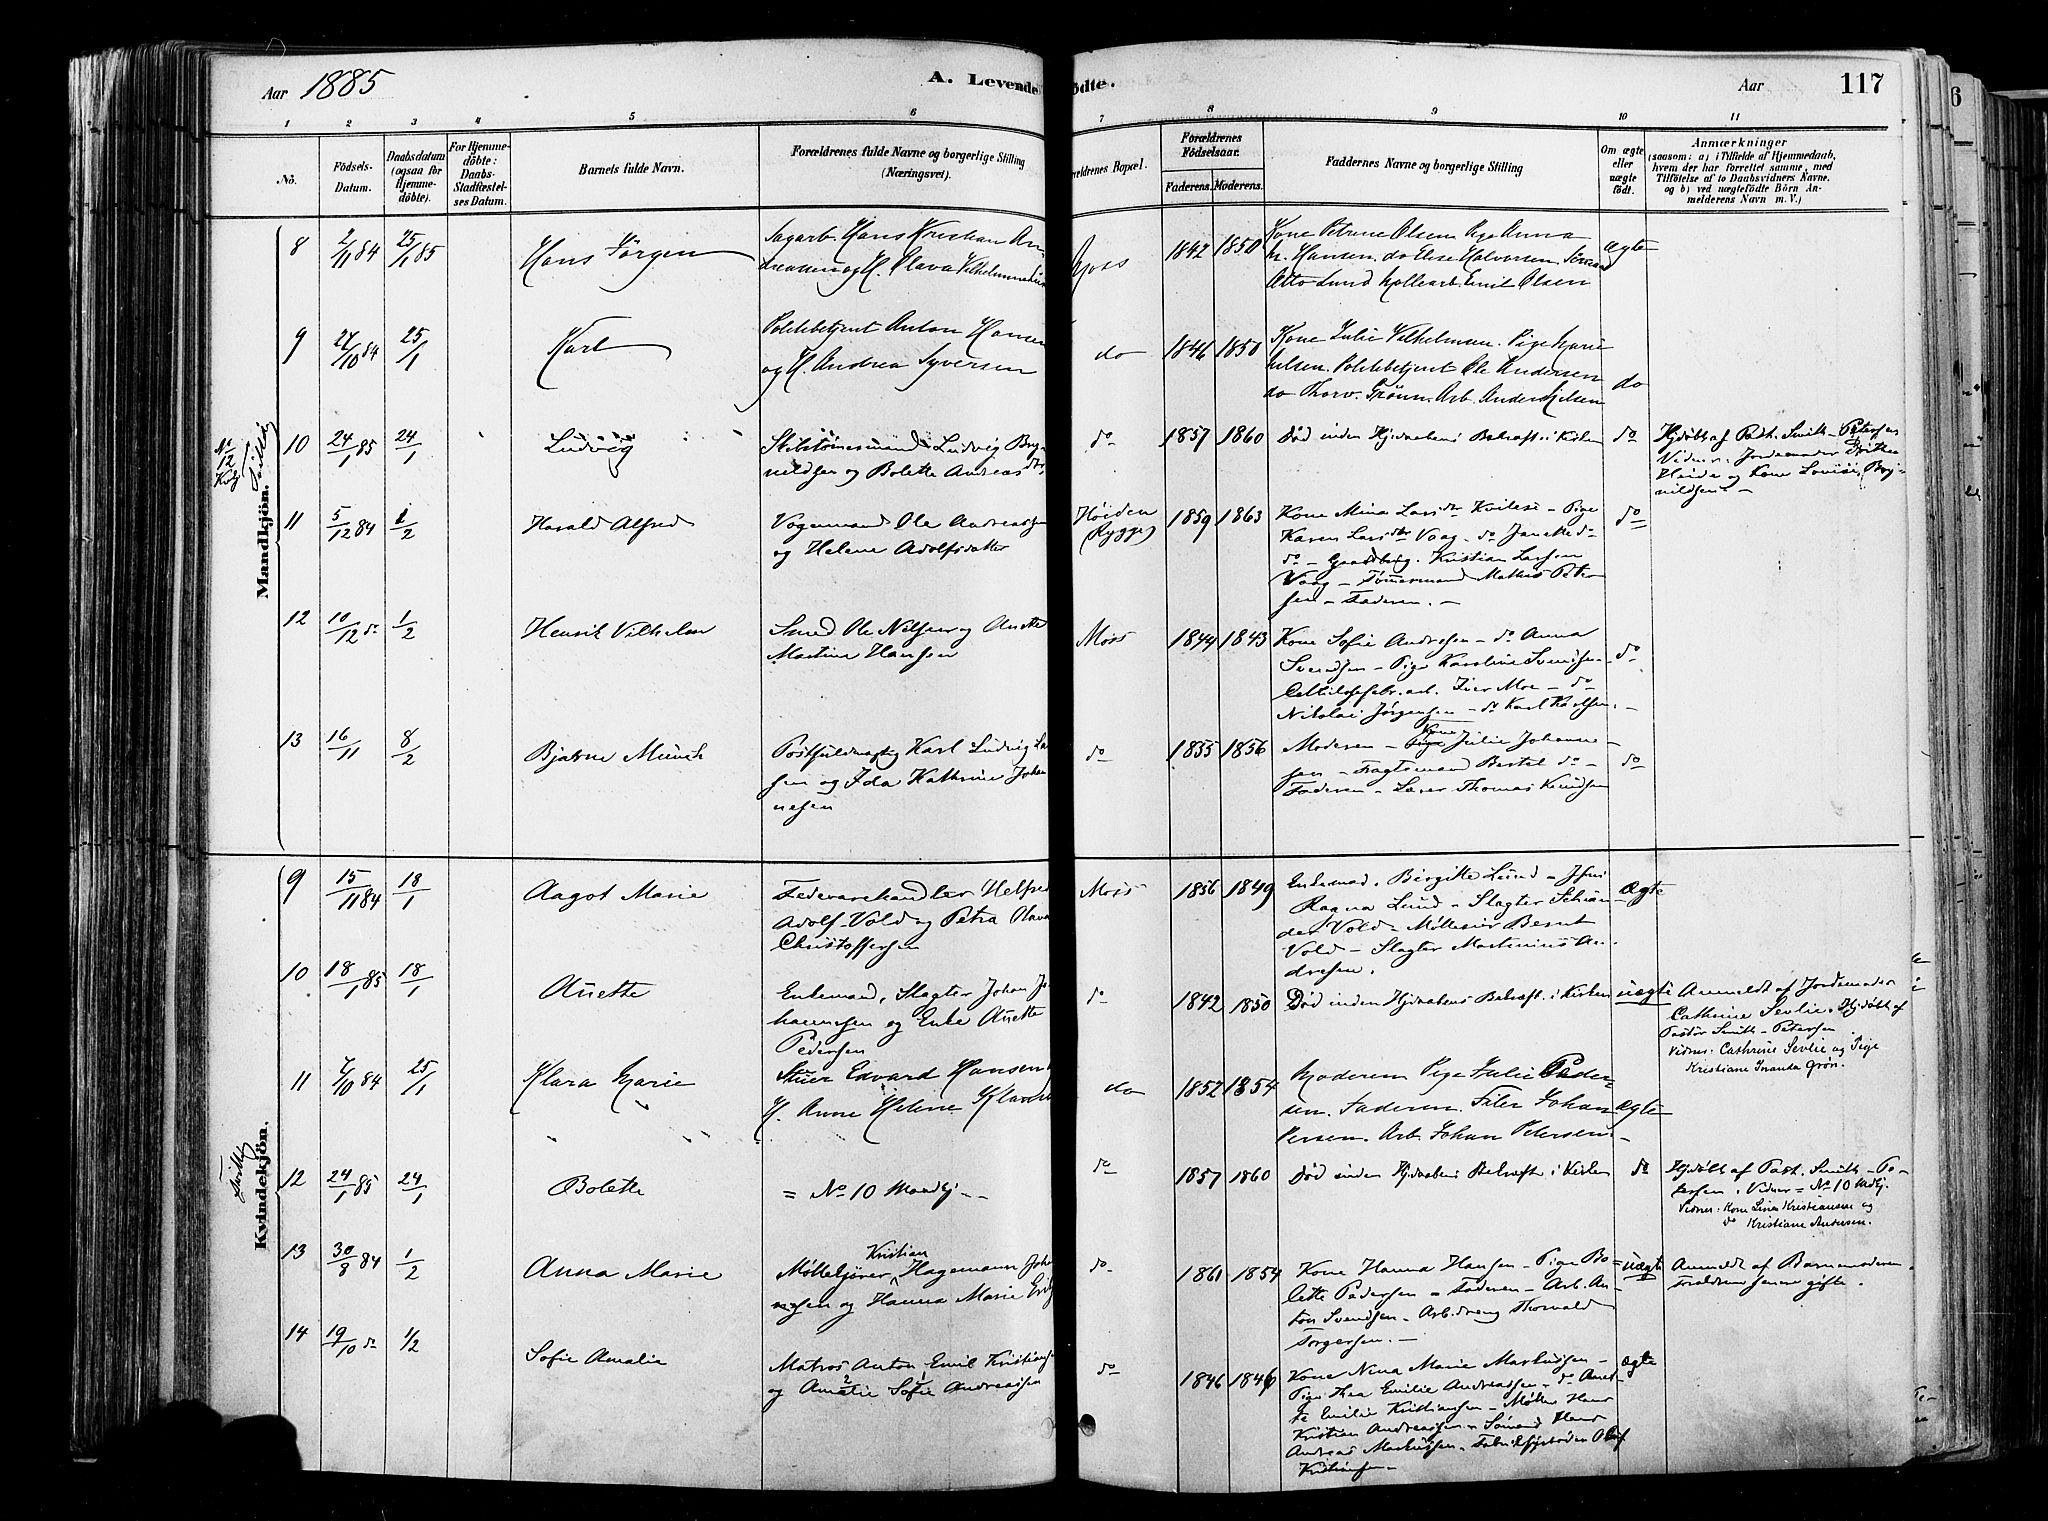 Aar 1885
A. Levende
ødte.
Aar
117
6
1 2 3 4 5 6 7 8 9 10 11
No.
Födsels-
Datum.
Daabsdatum
(ogsaa for
Hjemme-
döbte).
For Hjemme-
döbte:
Daabs-
Stadfæstel-
ses Datum.
Barnets fulde Navn.
Forældrenes fulde Navne og borgerlige Stilling
(Næringsvei).
ældrenes Bopæl.
Forældrenes
Födselsaar.
Faderens. Moderens.
Faddernes Navne og borgerlige Stilling
Om ægte
eller
uægte
födt.
Anmærkninger
(saasom: a) i Tilfælde af Hjemmedaab,
hvem der har forrettet samme, med
Tilföielse af to Daabsvidners Navne.
og b) ved uægtefödte Börn An-
melderens Navn m. V.)
Mandkjön.
8 2/11 84 25/1 85 Hans Jørgen
Sagarb. Hans Kristian An-
og H. Olava
Moss 1842 1850
Kone Petrine Olsen. Pige Anna
Hansen. do Elise Halvorsen.
Otto Lund Emil Olsen
ægte
9 27/10 84 25/1 Karl
Politibetjent Anton Hansen
og H. Andrea Syversen
do 1846 1850
Kone Julie Vilhelmsen. Pige Marie
Nilsen. Politibetjent Ole Andersen
do Thorv. Grønn. Arb. Anders Nilsen
do
No 12 Kvkj Tvilling
10 24/1 85 24/1 Ludvig
Ludvig Bry-
nildsen og Bolette Andreasdtr
do 1857 1860
Død inden Hjdaabens Bekræft. i Kirken
do
Hjdøbt af Past. Smith-Petersen
Vidner: Jordemoder
Heide og Kone Lovise Bry-
nildsen. –
11 5/12 84 1/2 Harald Alfred
Vognmand Ole Andreassen
og Helene Adolfsdatter
Høiden
(Rygge)
1859 1863
Kone Mina Larsdtr – Pige
Karen Larsdtr Vaag – do
do – . Kristian Larsen
Vaag – Tømmermand Mathis Peter
sen – Faderen. –
do
12 10/12 do 1/2 Henrik Vilhelm
Smed Ole Nilsen og Anette
Martine Hansen
Moss 1844 1843
Kone Sofie Andresen – do Anna
Svendsen – Pige Karoline Svendsen –
Cellulosefabr. arb. Moe – do
Nikolai Jørgensen – do Karl Karlsen. –
do
13 16/11 8/2 Bjarne Münch
Postfuldmægtig Karl Ludvig Lar
sen og Ida Kathrine Johan
nesen
do 1855 1856
Kone
Moderen – Pige Julie Johanne-
sen – Fragtemand Bertel do –
Faderen – Lærer Thomas Knudsen
do
Kvindekjön.
9 15/11 84 18/1 Aagot Marie
Fedevarehandler Helfred
Adolf Vold og Petra Olava
Christoffersen
Moss 1856 1849
Enkemad. Birgitte Lund – Jfru
Ragna Lund – Slagter
Vold – Bernt
Vold – Slagter Martinius An-
dresen.
ægte
10 18/1 85 18/1 Anette
Enkemand, Slagter Johan Jo
hannesen og Enke Anette
Pedersen
do 1842 1850
Død inden Hjdaabens Bekræft. i Kirken
uægte
Anmeldt af Jordemoder
Cathrine Sevlie. Hjdøbt af
Pastor Smith-Petersen
Vidner: Cathrine Sevlie og Pige
Kristiane Grøn.
11 7/10 84 25/1 Klara Marie
Edvard Hansen
H. Anne Helene
do 1852 1854
Moderen Pige Julie Peder-
sen. Faderen. Johan
Arb. Johan Petersen. –
ægte
Tvilling
12 24/1 85 24/1 Bolette
= No 10 Mandkj – –
do 1857 1860
Død inden Hjdaabens Bekræft. i Kirken
do
Hjdøbt af Past. Smith-Pe-
tersen. Vidner = No 10 Mdkj.
Vidner: Kone Lina Kristiansen og
do Kristiane Andersen.
13 30/8 84 1/2 Anna Marie
Kristian
Hagemann Johan
nesen og Hanna Marie
do 1861 1854
Kone Hanna Hansen – Pige Bo-
lette Pedersen – Faderen – Arb. An-
ton Svendsen – Arb.dreng Thorvald
Torgersen. –
uægte
Anmeldt af Barnemoderen.
Forældrene senere gifte.
14 19/10 do 1/2 Sofie Amalie
Matros Anton Emil Kristiansen
2 1
og Amalie Sofie Andreassen
do 1846 1846
Kone Nina Marie Markussen –
Pige Thea Emilie Andreassen – do
Emilie Kristiansen – Møller Hans
Kristian Andreassen – Sømand Hans
Andreas Markussen – Olaf
Kristiansen –
ægte